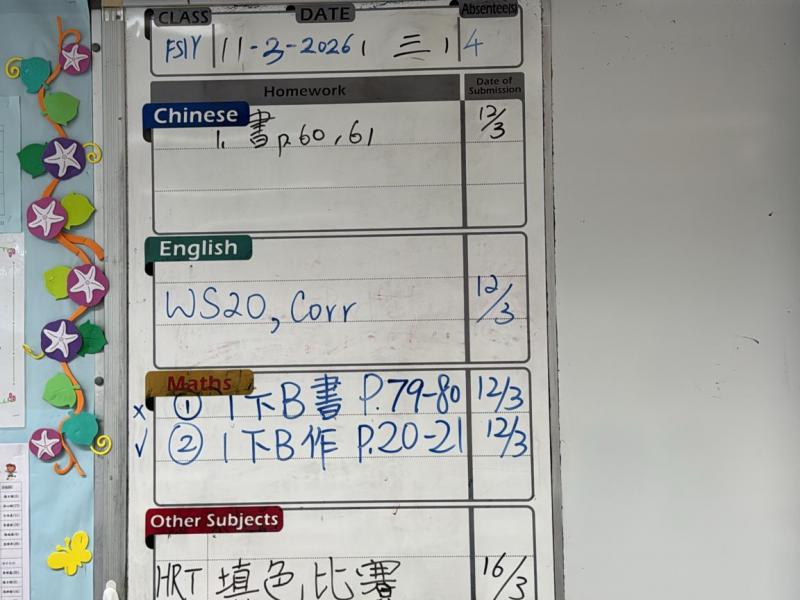 CLASS DATE Absentee(s)
FSIY 11-3-2026, 三, 4
Homework Date of Submission
Chinese
1. 書 p.60, 61 12/3
English
WS20, Corr 12/3
Maths
× ① 1下B書 P.79-80 12/3
✓ ② 1下B作 P.20-21 12/3
Other Subjects
HRT 填色比賽 16/3